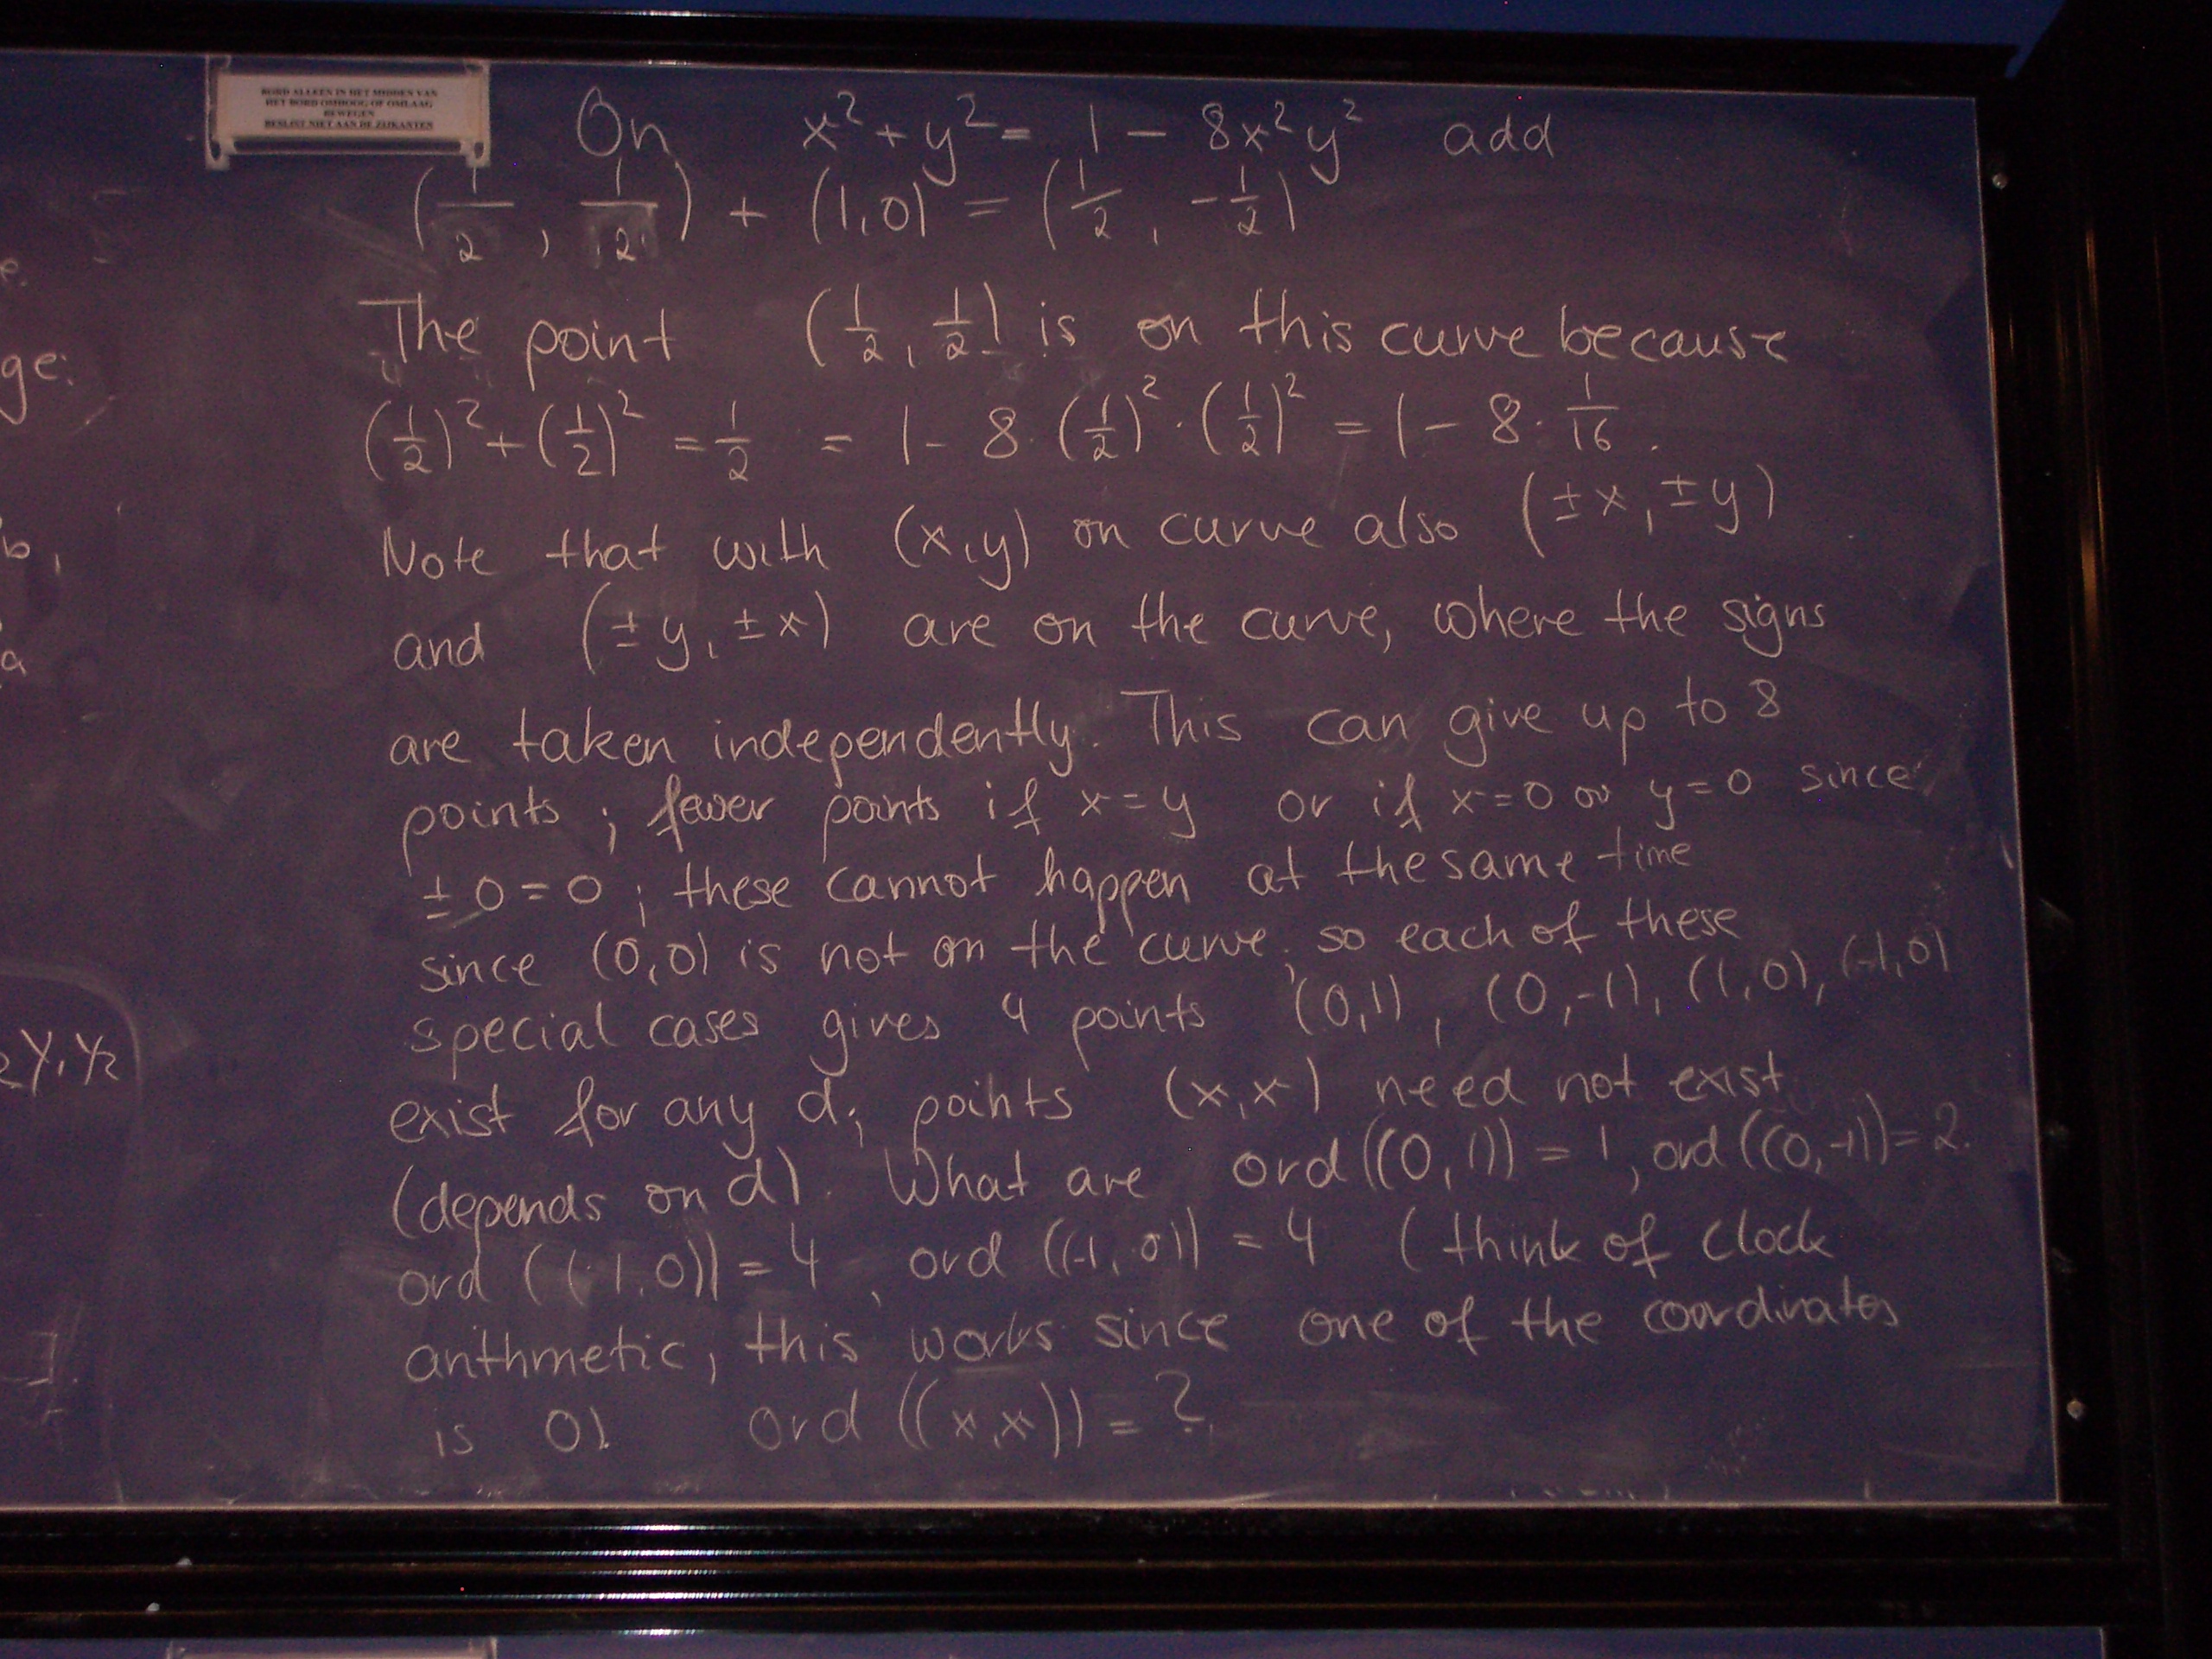 BORD ALLEEN IN HET MIDDEN VAN
HET BORD OMHOOG OF OMLAAG
BEWEGEN
BESLIST NIET AAN DE ZIJKANTEN
On x² + y² = 1 − 8x²y² add
(1/2, 1/2) + (1,0) = (1/2, −1/2)
The point (1/2, 1/2) is on this curve because
(1/2)² + (1/2)² = 1/2 = 1 − 8·(1/2)²·(1/2)² = 1 − 8·1/16.
Note that with (x,y) on curve also (±x, ±y)
and (±y, ±x) are on the curve, where the signs
are taken independently. This can give up to 8
points; fewer points if x=y or if x=0 or y=0 since
±0=0; these cannot happen at the same time
since (0,0) is not on the curve; so each of these
special cases gives 4 points (0,1), (0,-1), (1,0), (-1,0)
exist for any d; points (x,x) need not exist
(depends on d). What are ord((0,1)) = 1, ord((0,-1)) = 2.
ord((1,0)) = 4, ord((-1,0)) = 4 (think of clock
arithmetic, this works since one of the coordinates
is 0) ord((x,x)) = ?
e.
ge:
b,
a
2Y1Y2
].